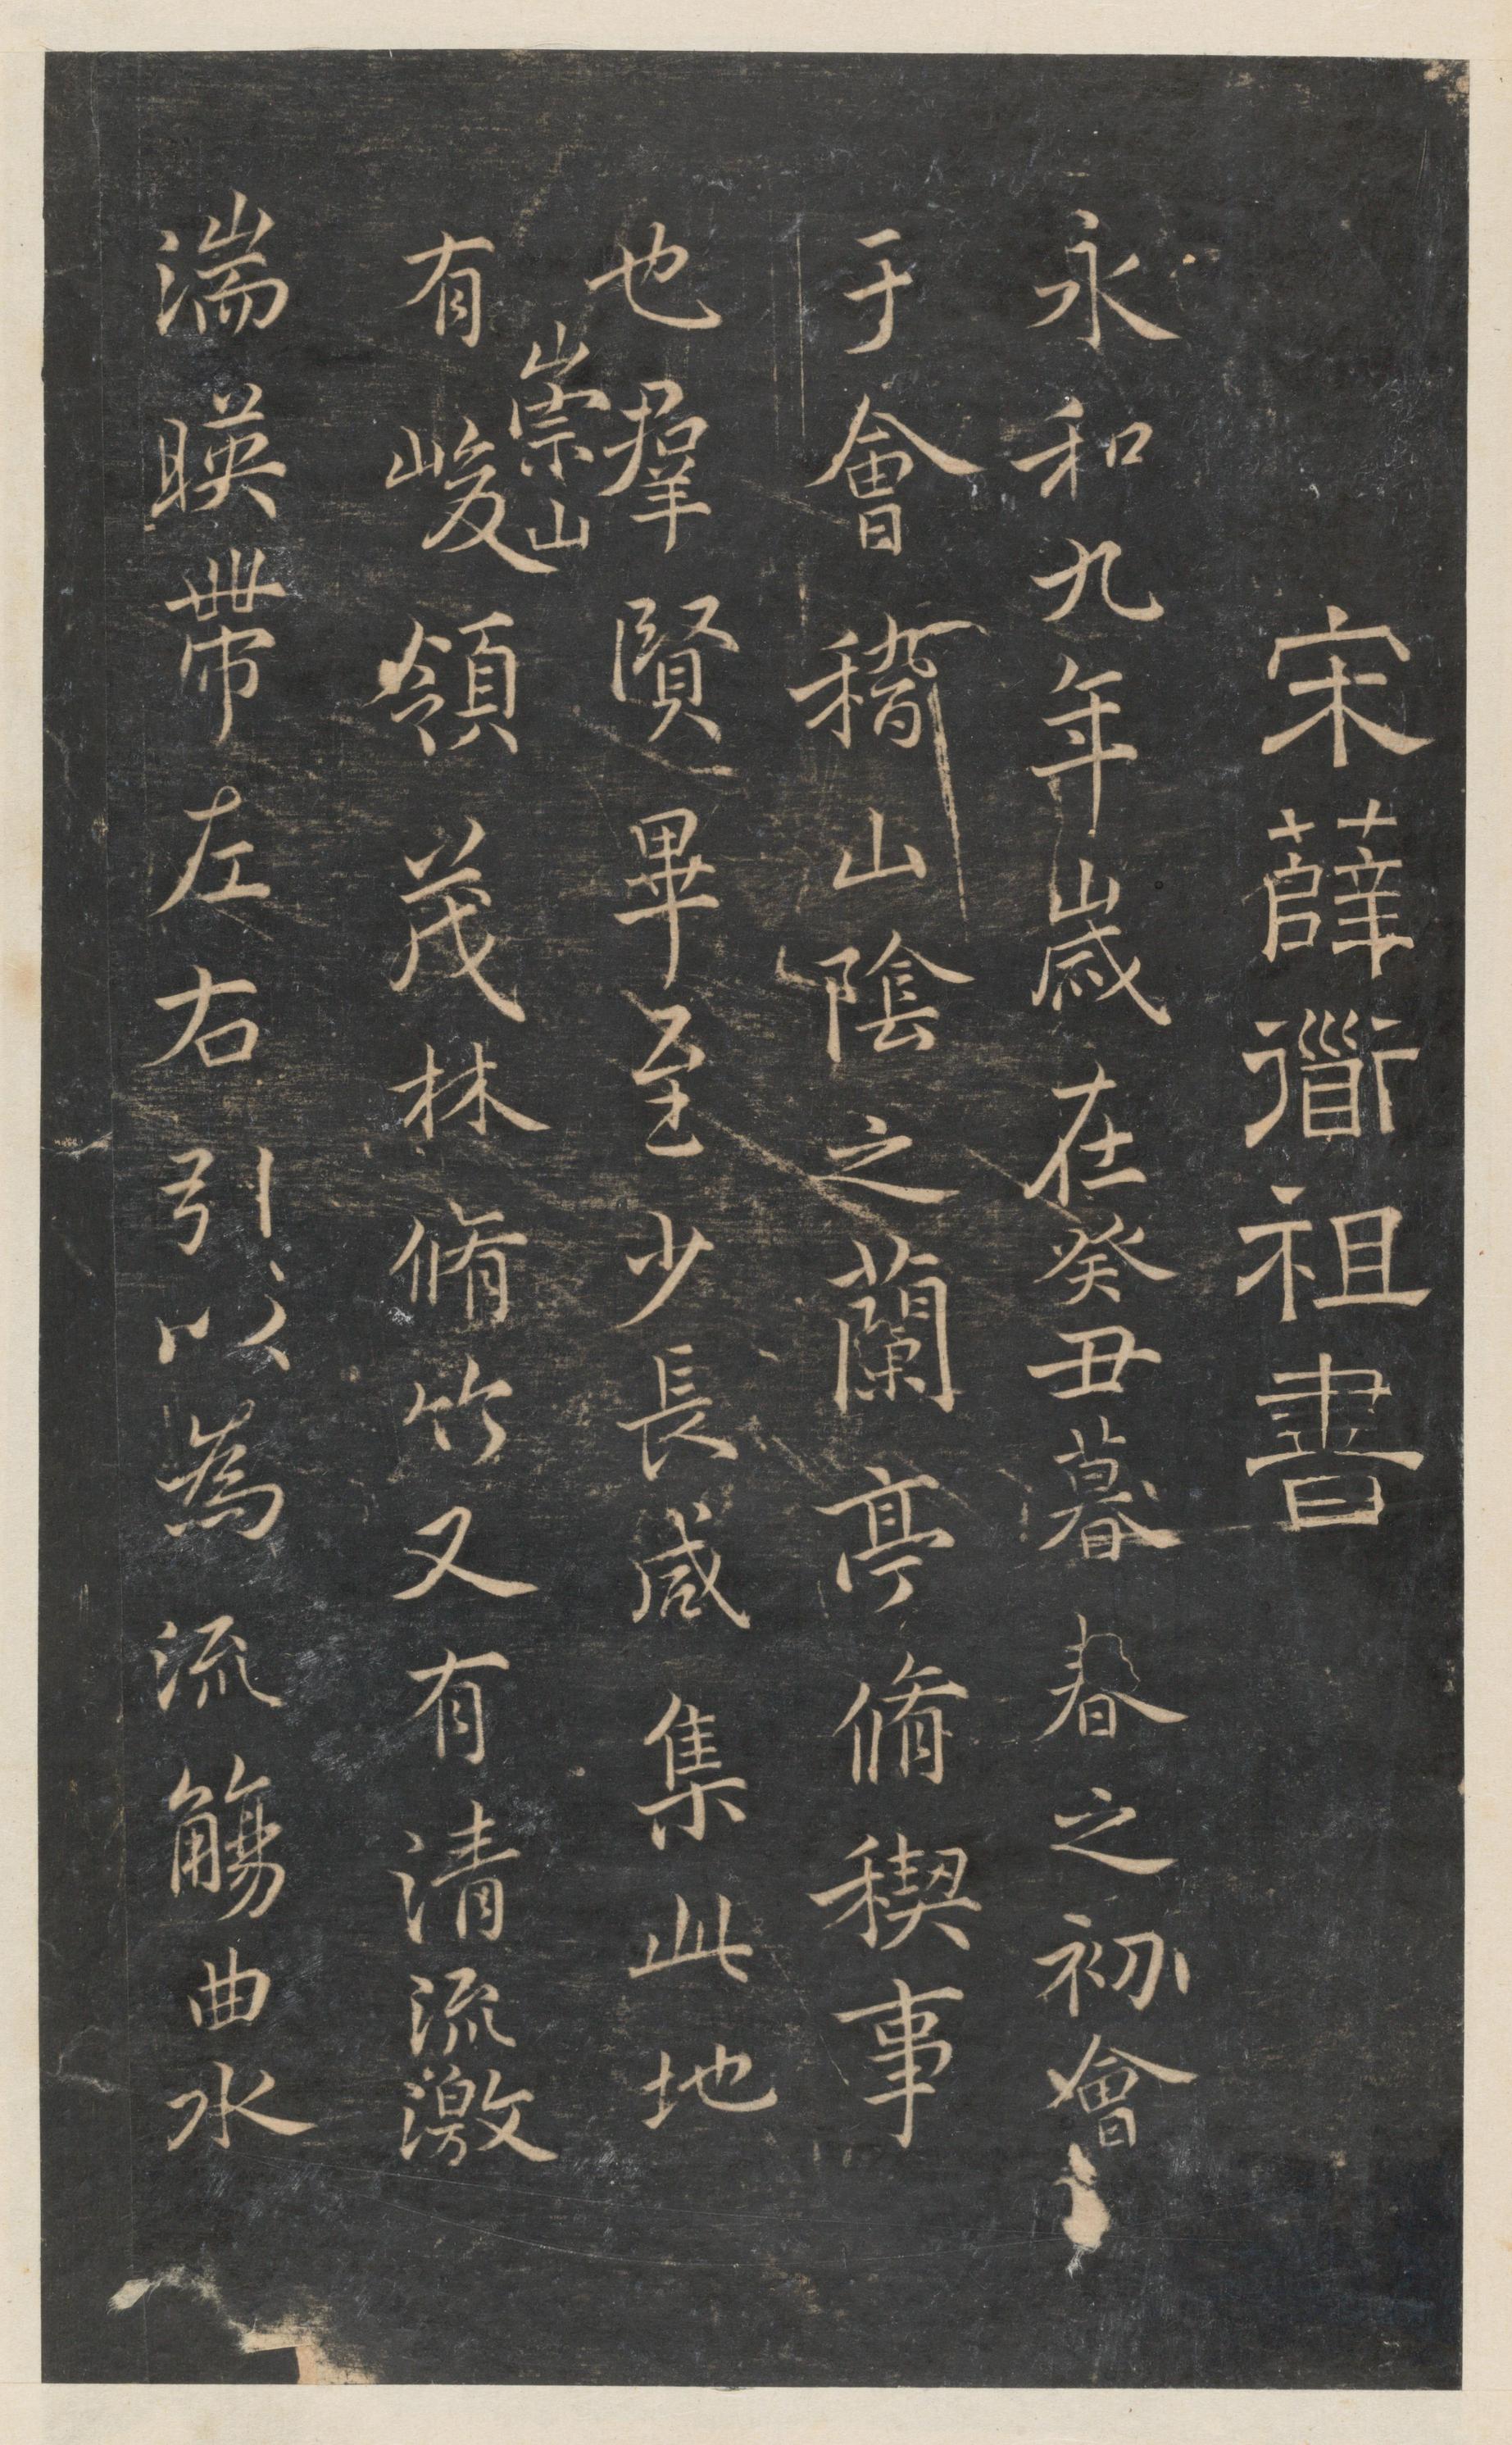 宋薛衟祖書
永和九年歲在癸丑暮春之初會
于會稽山陰之蘭亭脩稧事
也羣賢畢至少長咸集此地
崇山
有峻領茂林脩竹又有清流激
湍暎帶左右引以為流觴曲水